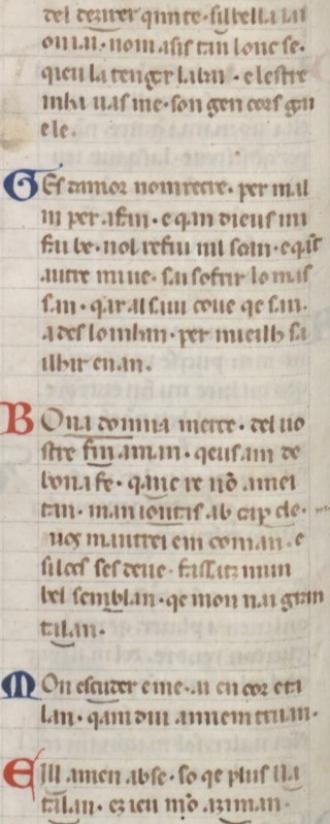 del dezirer quinte. sibella lai
on iai. nom asis tan lonc se.
qieu la tengr labai. e lestre
inha uas me. son gen cors gra
ele.
Ges damor nom recre. per mal
ni per afan. e qan dieus mi
fai be. nol refui nil soan. e qãt
autre miue. sai sofrir lo mas
san. qar al saui coue qe san.
ades lonhan. per mieilh sa
ilhir enan.
Bona domna merce. del uo
stre fin aman. qeus am de
bona fe. qanc re nõ amei
tan. man iointas ab cap cle.
uos mautrei em coman. e
silocs ses deue. faissatz mun
bel semblan. qe mon nai gran
talan.
Mon escuder e me. ai en cor eta
lan. qam dui annem truan.
Ell amen abse. so qe plus lla
talan. ez ieu nõ aziman.